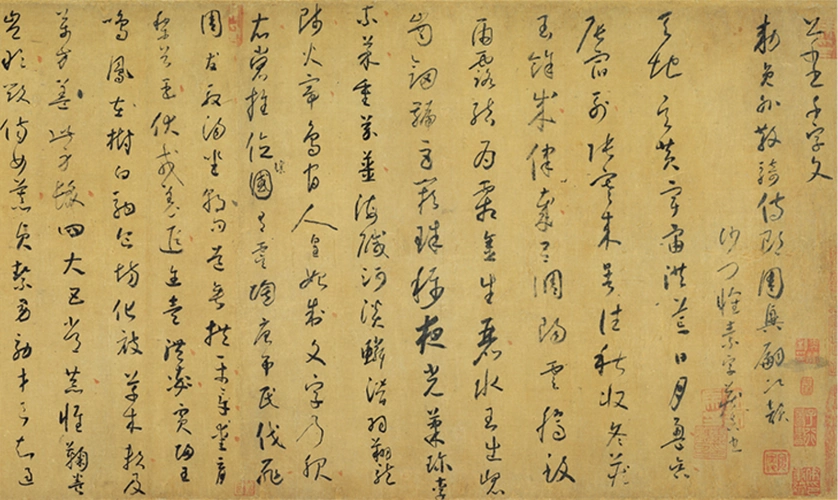 草書千字文
勅員外散騎侍郎周興嗣次韻
沙門懷素字藏真書
天地玄黃宇宙洪荒日月盈昃
辰宿列張寒來暑往秋收冬藏
閏餘成歲律呂調陽雲騰致
雨露結為霜金生麗水玉出崑
崗劍號巨闕珠稱夜光菓珍李
柰菜重芥薑海鹹河淡鱗潛羽翔龍
師火帝鳥官人皇始制文字乃服
衣裳推位讓國有虞陶唐弔民伐罪
周發殷湯坐朝問道垂拱平章愛育
黎首臣伏戎羌遐邇壹體率賓歸王
鳴鳳在樹白駒食場化被草木賴及
萬方蓋此身髮四大五常恭惟鞠養
豈敢毀傷女慕貞潔男效才良知過